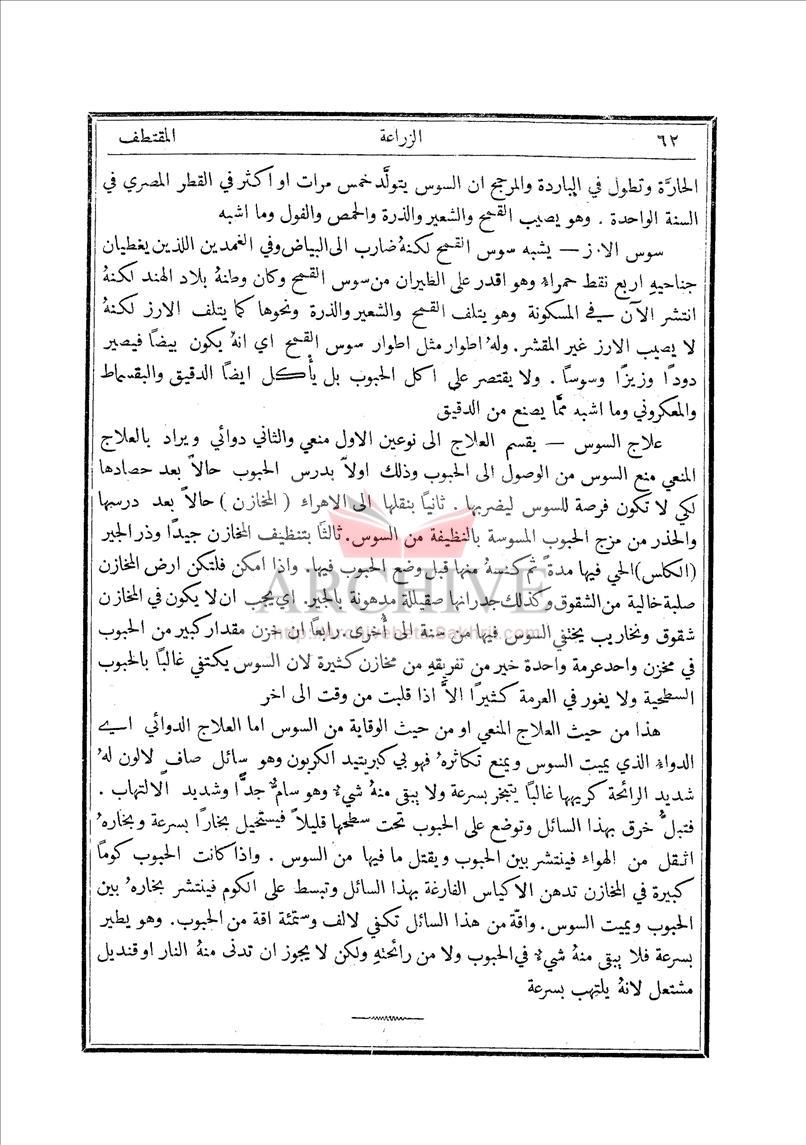 ٦٢ الزراعة المقتطف
الحارَّة وتطول في الباردة والمرجح ان السوس يتولَّد خمس مرات او اكثر في القطر المصري في
السنة الواحدة . وهو يصيب القمح والشعير والذرة والحمص والفول وما اشبه
سوس الارز — يشبه سوس القمح لكنهُ ضارب الى البياض وفي الغمدين اللذين يغطيان
جناحيهِ اربع نقط حمراء وهو اقدر على الطيران من سوس القمح وكان وطنهُ بلاد الهند لكنهُ
انتشر الآن في المسكونة وهو يتلف القمح والشعير والذرة ونحوها كما يتلف الارز لكنهُ
لا يصيب الارز غير المقشر. ولهُ اطوار مثل اطوار سوس القمح اي انهُ يكون بيضًا فيصير
دودًا وزيزًا وسوسًا . ولا يقتصر على اكل الحبوب بل يأكل ايضًا الدقيق والبقسماط
والمعكروني وما اشبه ممَّا يصنع من الدقيق
علاج السوس — يقسم العلاج الى نوعين الاول منعي والثاني دوائي ويراد بالعلاج
المنعي منع السوس من الوصول الى الحبوب وذلك اولاً بدرس الحبوب حالاً بعد حصادها
لكي لا تكون فرصة للسوس ليضربها . ثانيًا بنقلها الى الاهراء ( المخازن ) حالاً بعد درسها
والحذر من مزج الحبوب المسوسة بالنظيفة من السوس. ثالثًا بتنظيف المخازن جيدًا وذر الجير
(الكلس) الحي فيها مدةً ثم كنسهُ منها قبل وضع الحبوب فيها. واذا امكن فلتكن ارض المخازن
صلبة خالية من الشقوق وكذلك جدرانها صقيلة مدهونة بالجير. اي يجب ان لا يكون في المخازن
شقوق ونخاريب يختفي السوس فيها من سنة الى أُخرى. رابعًا ان خزن مقدار كبير من الحبوب
في مخزن واحد عرمة واحدة خير من تفريقهِ من مخازن كثيرة لان السوس يكتفي غالبًا بالحبوب
السطحية ولا يغور في العرمة كثيرًا الاَّ اذا قلبت من وقت الى اخر
هذا من حيث العلاج المنعي او من حيث الوقاية من السوس اما العلاج الدوائي اي
الدواء الذي يميت السوس ويمنع تكاثرهُ فهو بي كبريتيد الكربون وهو سائل صافٍ لا لون لهُ
شديد الرائحة كريهها غالبًا يتبخر بسرعة ولا يبقى منهُ شيءٌ وهو سامٌّ جدًّا وشديد الالتهاب .
فتبلُّ خرق بهذا السائل وتوضع على الحبوب تحت سطحها قليلاً فيستحيل بخارًا بسرعة وبخارهُ
اثقل من الهواء فينتشر بين الحبوب ويقتل ما فيها من السوس . واذا كانت الحبوب كومًا
كبيرة في المخازن تدهن الاكياس الفارغة بهذا السائل وتبسط على الكوم فينتشر بخارهُ بين
الحبوب ويميت السوس. واقَّة من هذا السائل تكفي لالف وستمئة اقة من الحبوب. وهو يطير
بسرعة فلا يبقى منهُ شيءٌ في الحبوب ولا من رائحتهِ ولكن لا يجوز ان تدنى منهُ النار او قنديل
مشتعل لانهُ يلتهب بسرعة
ARCHIVE